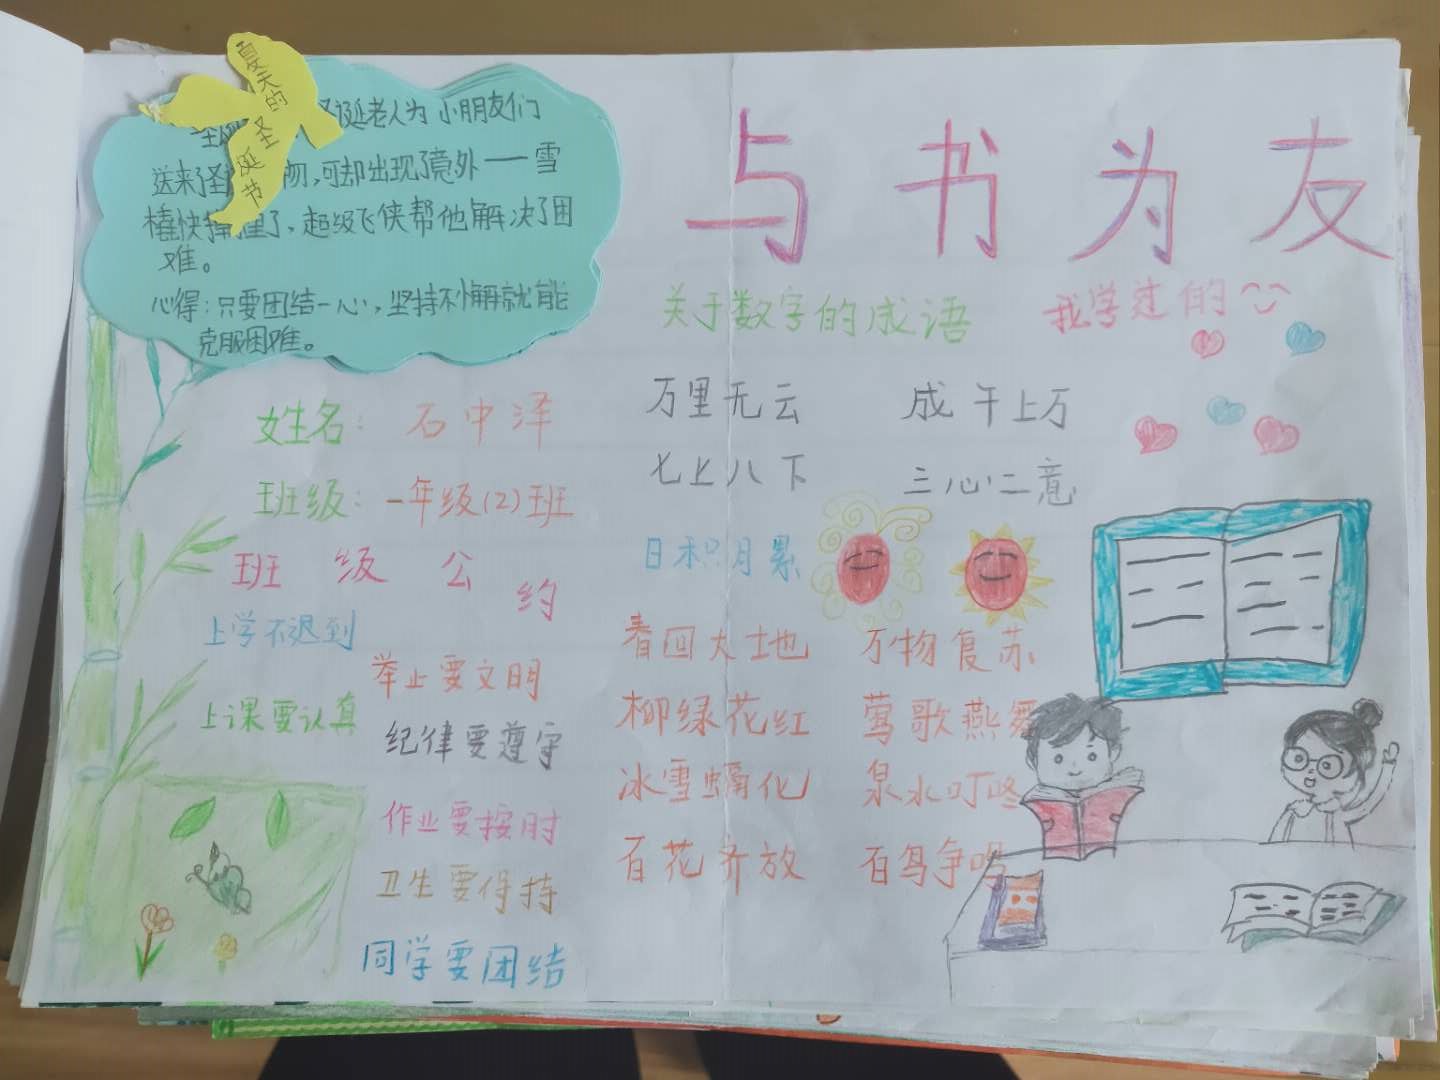 夏天的圣诞节
诞老人为小朋友们
送来了圣 物，可却出现了意外——雪
橇快 了，超级飞侠帮他解决了困
难。
心得：只要团结一心，坚持不懈就能
克服困难。
与书为友
关于数字的成语 我学过的
万里无云 成千上万
七上八下 三心二意
日积月累
春回大地 万物复苏
柳绿花红 莺歌燕舞
冰雪融化 泉水叮咚
百花齐放 百鸟争鸣
姓名：石中泽
班级：一年级(2)班
班级公约
上学不迟到
举止要文明
上课要认真
纪律要遵守
作业要按时
卫生要保持
同学要团结